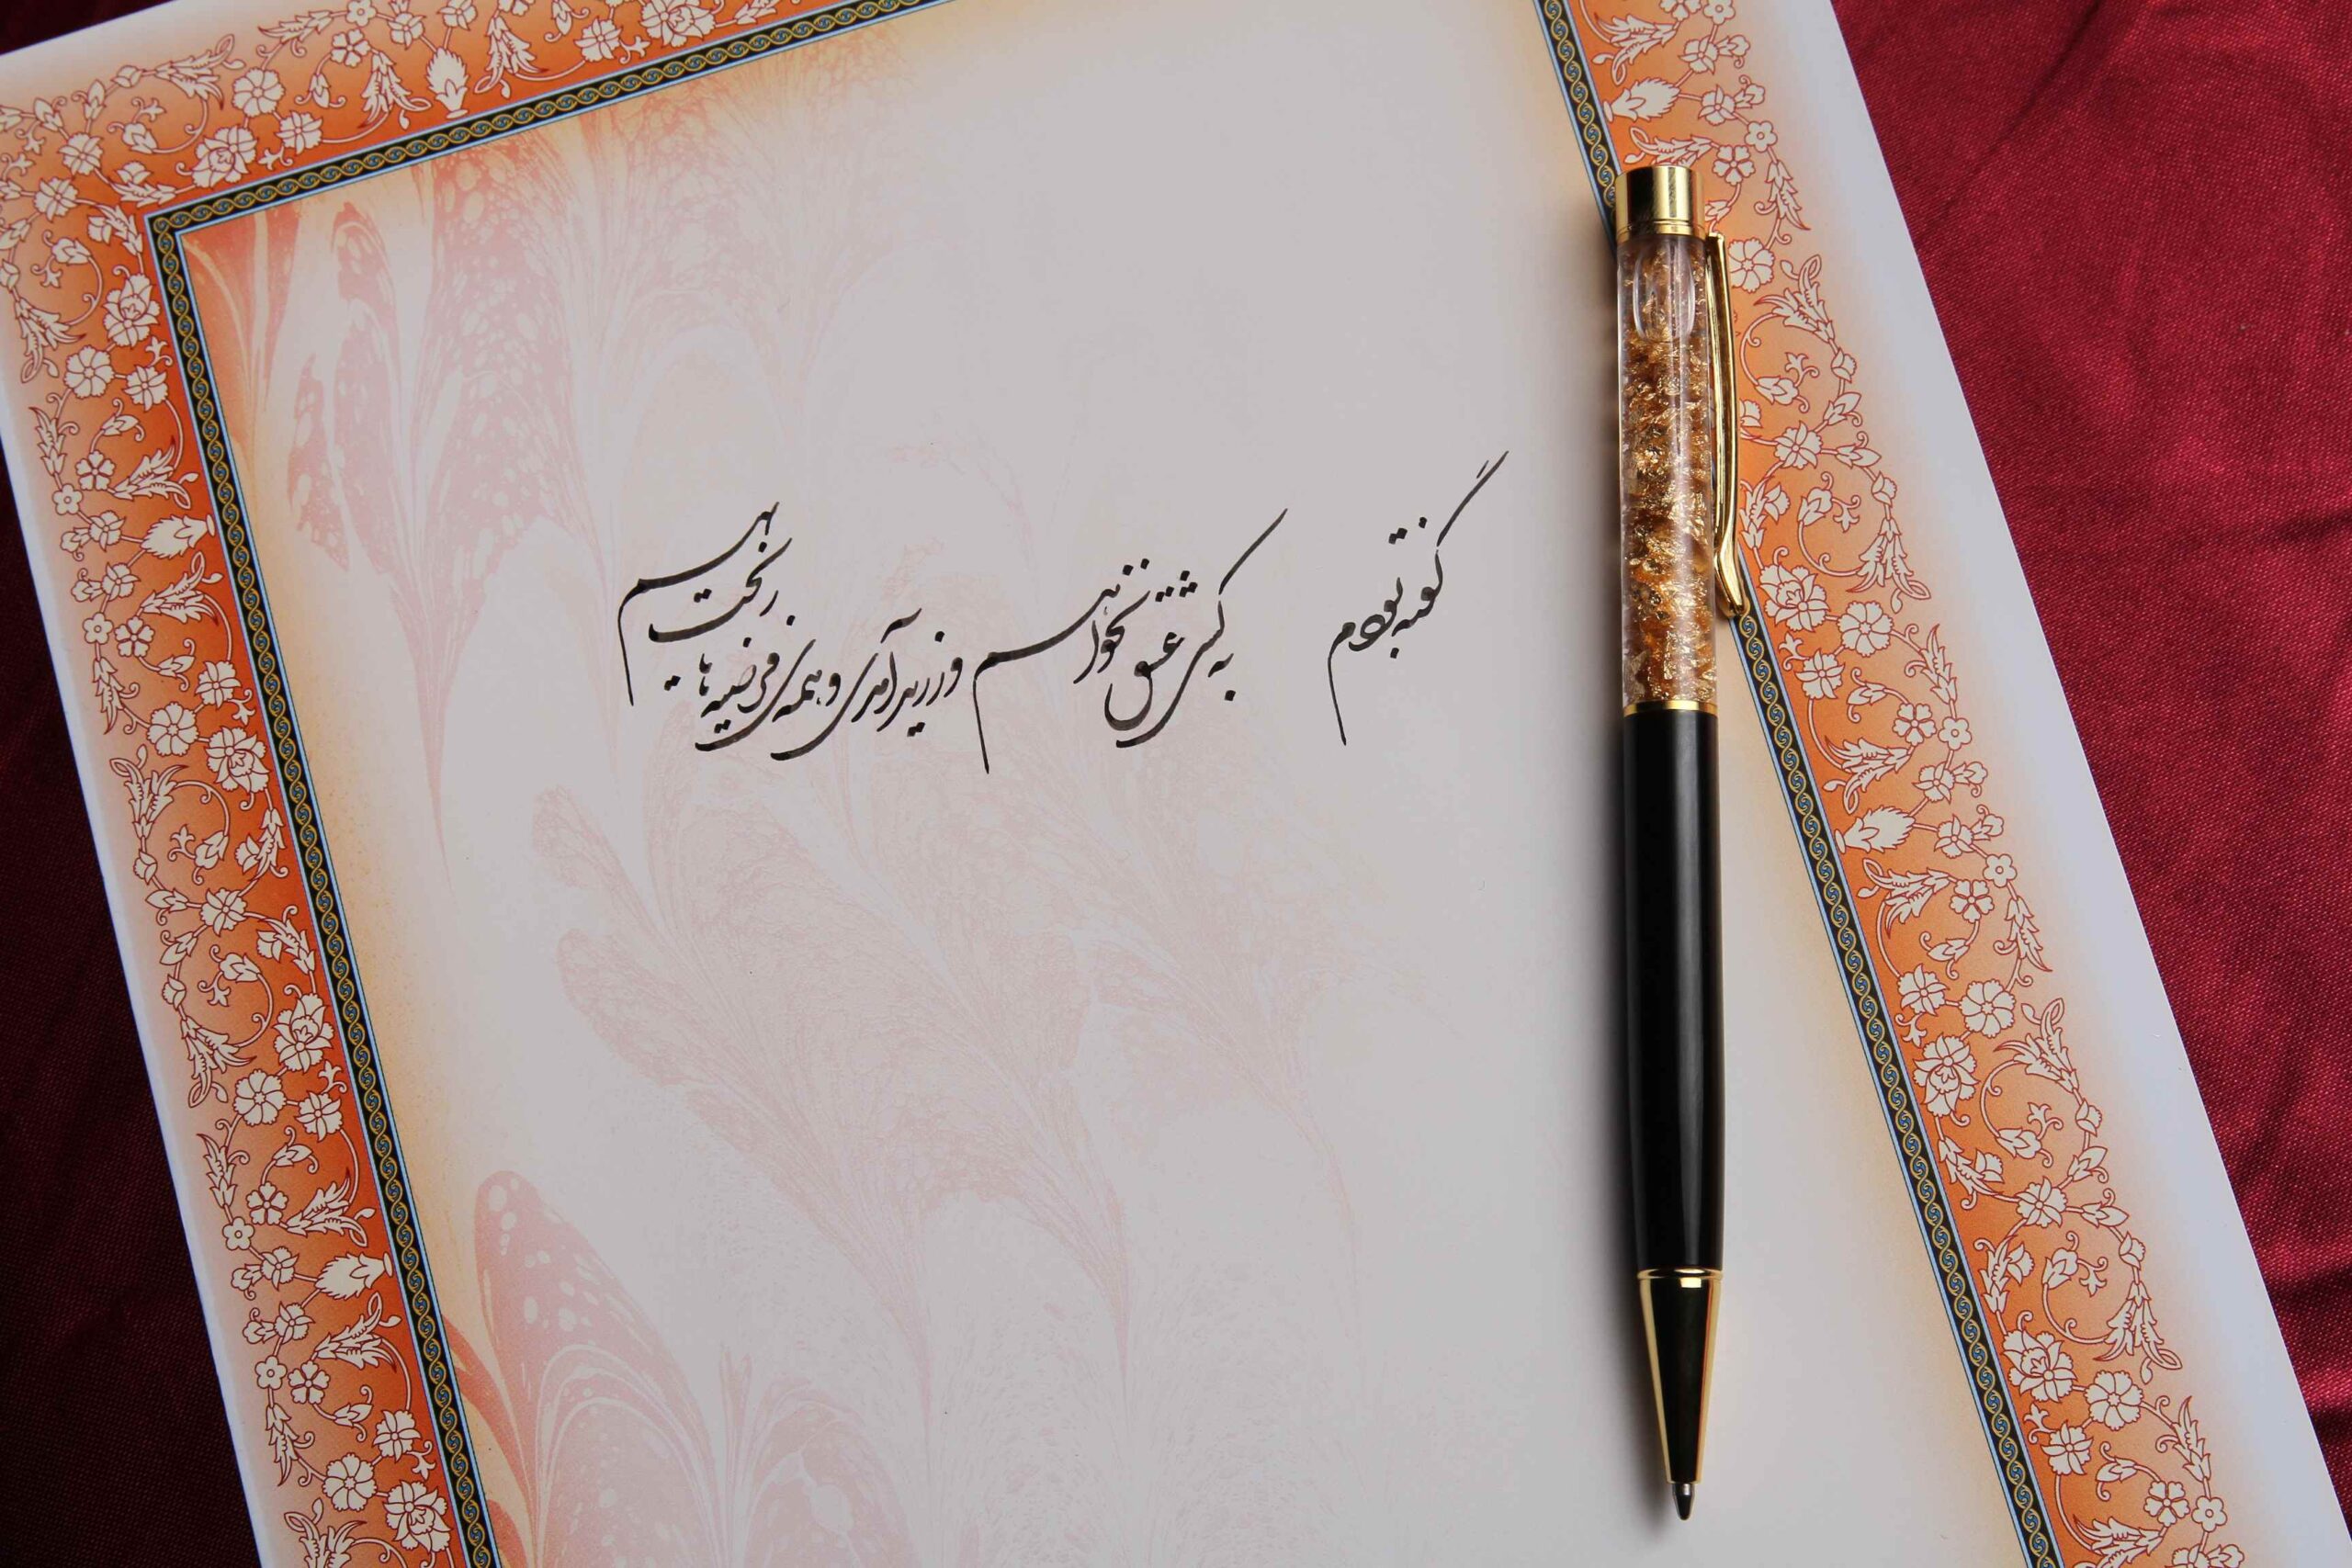 گفته بودم به کسی عشق نخواهم ورزید آمدی و همه ی فرضیه ها ریخت بهم